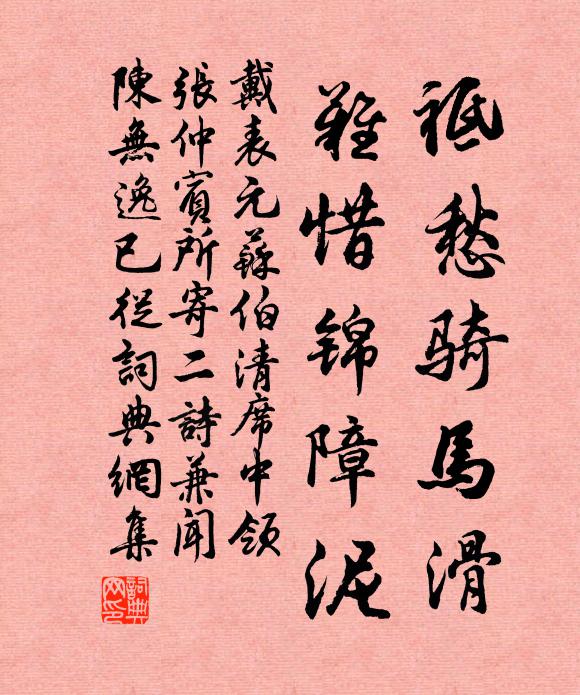 祗愁骑馬滑
難惜锦障泥
戴表元蘇伯清席中领
張仲賓所寄二詩兼闻
陳無逸已從詞典網集
詞典
网印